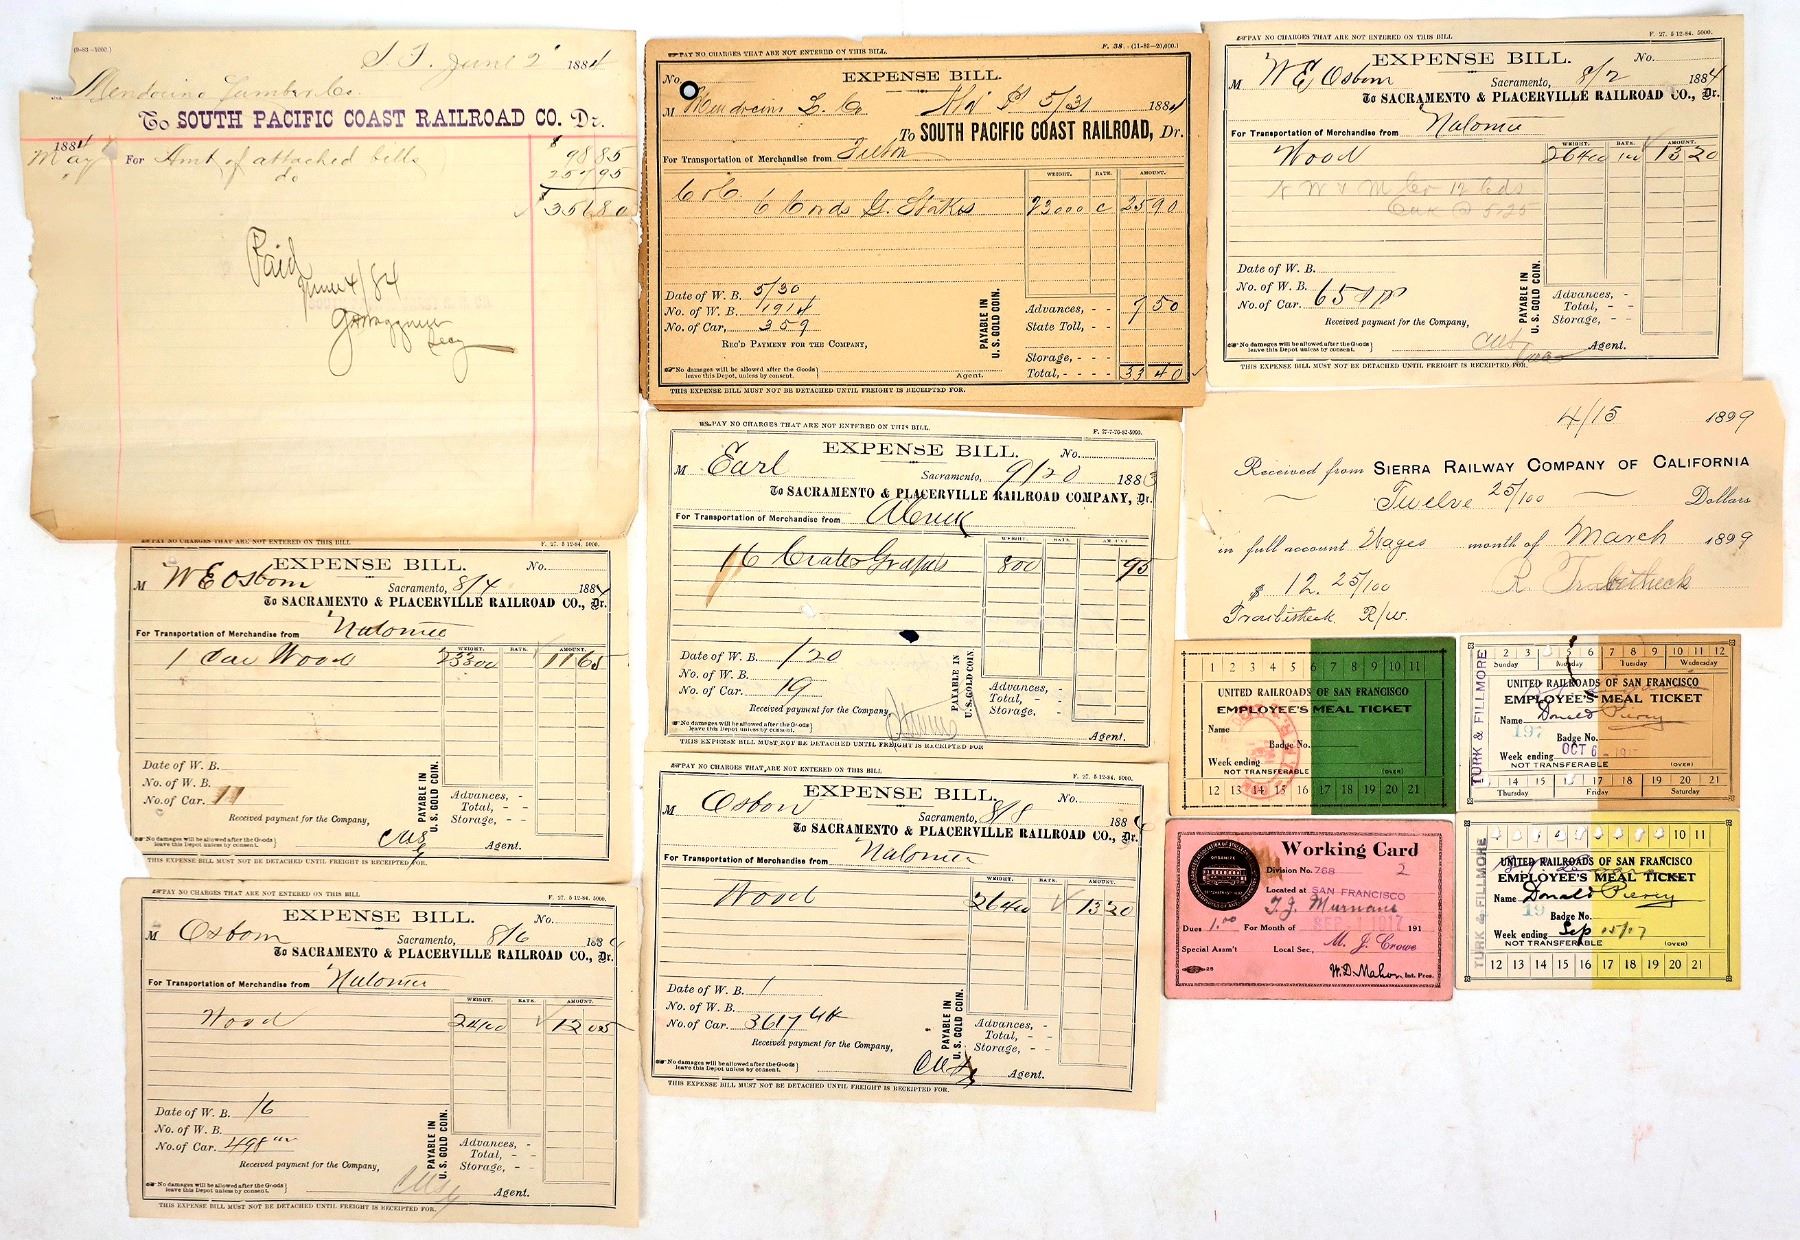 (9-83-5000.)
S. F. June 2 1884
Mendocino Lumber Co.
To SOUTH PACIFIC COAST RAILROAD CO. Dr.
1884
May For Amt of attached bills $ 98 85
" do
$ 356 80
Paid
June 4/84
Secy
PAY NO CHARGES THAT ARE NOT ENTERED ON THIS BILL. F. 38.
EXPENSE BILL.
No.
M Mendocino L. Co 5/31 1884
To SOUTH PACIFIC COAST RAILROAD, Dr.
For Transportation of Merchandise from Felton
WEIGHT. RATE. AMOUNT.
6 Cords G. Stakes 73000 C 25 90
Date of W. B. 5/30
No. of W. B. 1914
No. of Car, 359
REC'D PAYMENT FOR THE COMPANY,
PAYABLE IN
U. S. GOLD COIN.
Advances, - - 7 50
State Toll, - -
Storage, - -
Total, - - - - 33 40
No damages will be allowed after the Goods
leave this Depot, unless by consent.
Agent.
THIS EXPENSE BILL MUST NOT BE DETACHED UNTIL FREIGHT IS RECEIPTED FOR.
PAY NO CHARGES THAT ARE NOT ENTERED ON THIS BILL F. 27. 5 12-84. 5000.
EXPENSE BILL. No.
M W E Osborn Sacramento, 8/2 1884
To SACRAMENTO & PLACERVILLE RAILROAD CO., Dr.
For Transportation of Merchandise from Natoma
WEIGHT. RATE. AMOUNT.
Wood 26400 13 20
Date of W. B.
No. of W. B.
No. of Car.
Received payment for the Company,
PAYABLE IN
U. S. GOLD COIN.
Advances, -
Total, - -
Storage, - -
No damages will be allowed after the Goods
leave this Depot unless by consent.
Agent.
THIS EXPENSE BILL MUST NOT BE DETACHED UNTIL FREIGHT IS RECEIPTED FOR.
PAY NO CHARGES THAT ARE NOT ENTERED ON THIS BILL.
EXPENSE BILL. No.
M Earl Sacramento, 9/20 1883
To SACRAMENTO & PLACERVILLE RAILROAD COMPANY, Dr.
For Transportation of Merchandise from
WEIGHT. RATE. AMOUNT
16 Crates Grapes 800 95
Date of W. B. 120
No. of W. B.
No. of Car. 19
Received payment for the Company,
PAYABLE IN
U. S. GOLD COIN.
Advances, -
Total, - -
Storage, - -
No damages will be allowed after the Goods
leave this Depot unless by consent.
Agent.
THIS EXPENSE BILL MUST NOT BE DETACHED UNTIL FREIGHT IS RECEIPTED FOR
4/15 1899
Received from SIERRA RAILWAY COMPANY OF CALIFORNIA
Twelve 25/100 Dollars
in full account Wages month of March 1899
$ 12. 25/100 R. Traubitheck
Traubitheck R/w.
PAY NO CHARGES THAT ARE NOT ENTERED ON THIS BILL F. 27. 5 12-84. 5000.
EXPENSE BILL. No.
M W E Osborn Sacramento, 8/4 1884
To SACRAMENTO & PLACERVILLE RAILROAD CO., Dr.
For Transportation of Merchandise from Natoma
WEIGHT. RATE. AMOUNT.
1 Car Wood 23300 11 65
Date of W. B.
No. of W. B.
No. of Car.
Received payment for the Company,
PAYABLE IN
U. S. GOLD COIN.
Advances, -
Total, - -
Storage, - -
No damages will be allowed after the Goods
leave this Depot unless by consent.
Agent.
THIS EXPENSE BILL MUST NOT BE DETACHED UNTIL FREIGHT IS RECEIPTED FOR.
PAY NO CHARGES THAT ARE NOT ENTERED ON THIS BILL F. 27. 5 12-84. 5000.
EXPENSE BILL. No.
M Osborn Sacramento, 8/8 188
To SACRAMENTO & PLACERVILLE RAILROAD CO., Dr.
For Transportation of Merchandise from Natoma
WEIGHT. RATE. AMOUNT.
Wood 26400 13 20
Date of W. B.
No. of W. B.
No. of Car. 3617
Received payment for the Company,
PAYABLE IN
U. S. GOLD COIN.
Advances, -
Total, - -
Storage, - -
No damages will be allowed after the Goods
leave this Depot unless by consent.
Agent.
THIS EXPENSE BILL MUST NOT BE DETACHED UNTIL FREIGHT IS RECEIPTED FOR.
PAY NO CHARGES THAT ARE NOT ENTERED ON THIS BILL F. 27. 5 12-84. 5000.
EXPENSE BILL. No.
M Osborn Sacramento, 8/6 1884
To SACRAMENTO & PLACERVILLE RAILROAD CO., Dr.
For Transportation of Merchandise from Natoma
WEIGHT. RATE. AMOUNT.
Wood
Date of W. B. 16
No. of W. B.
No. of Car. 498
Received payment for the Company,
PAYABLE IN
U. S. GOLD COIN.
Advances, -
Total, - -
Storage, - -
No damages will be allowed after the Goods
leave this Depot unless by consent.
Agent.
THIS EXPENSE BILL MUST NOT BE DETACHED UNTIL FREIGHT IS RECEIPTED FOR.
1 2 3 4 5 6 7 8 9 10 11
UNITED RAILROADS OF SAN FRANCISCO
EMPLOYEE'S MEAL TICKET
Name
Badge No.
Week ending
NOT TRANSFERABLE (OVER)
12 13 14 15 16 17 18 19 20 21
TURK & FILLMORE
2 3 5 6 7 8 9 10 11 12
Sunday Monday Tuesday Wednesday
UNITED RAILROADS OF SAN FRANCISCO
EMPLOYEE'S MEAL TICKET
Name Donald Piercy
197
Badge No.
Week ending OCT 6 - 1917
NOT TRANSFERABLE (OVER)
14 15 17 18 19 20 21
Thursday Friday Saturday
Working Card
Division No. 768 2
Located at SAN FRANCISCO
T. J. Murnane
Dues 1.00 For Month of SEP 1917 191
Special Assm't Local Sec. M. J. Crowe
W. D. Mahon Int. Pres.
TURK & FILLMORE
10 11
UNITED RAILROADS OF SAN FRANCISCO
EMPLOYEE'S MEAL TICKET
Name Donald Piercy
19
Badge No.
Week ending Sep 15/17
NOT TRANSFERABLE (OVER)
12 13 14 15 16 17 18 19 20 21